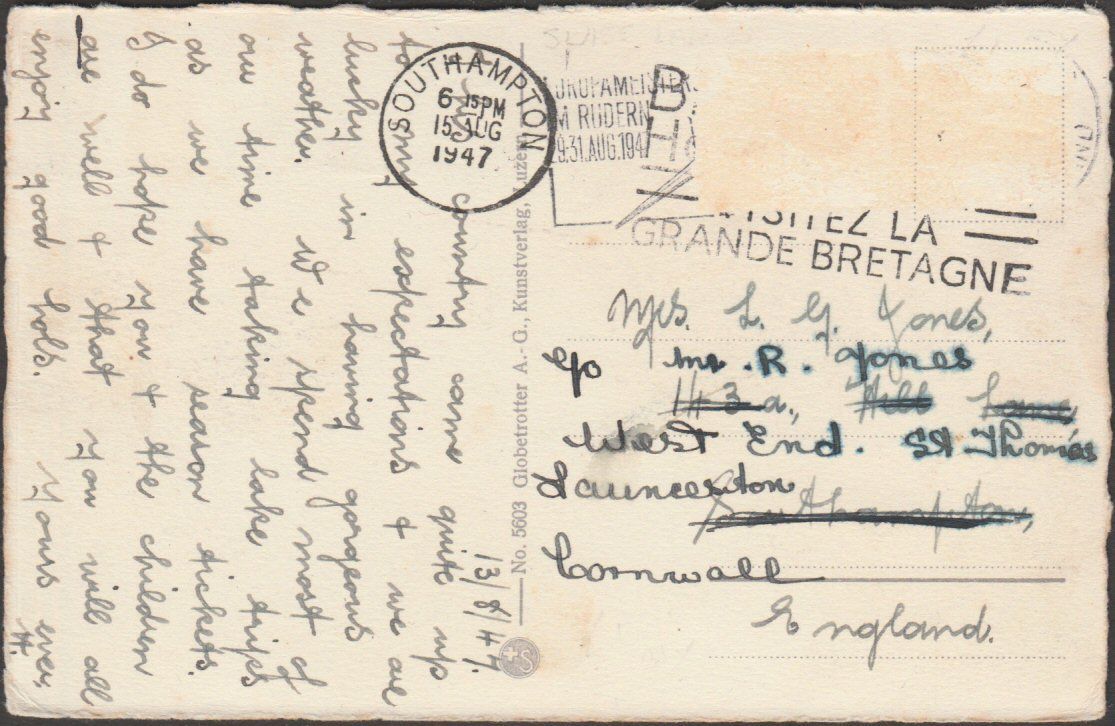 13/8/47.
This country came quite up
to my expectations & we are
lucky in having gorgeous
weather. We spend most of
our time taking lake trips
as we have season tickets.
I do hope you & the children
are well & that you will all
enjoy good hols. Yours ever,
No. 5603 Globetrotter A.-G., Kunstverlag, Luzern
SOUTHAMPTON
6 15PM
15 AUG
1947
EUROPAMEISTER
IM RUDERN
29.31.AUG.194
VISITEZ LA
GRANDE BRETAGNE
Mrs. L. G. Jones,
c/o Mr. R. Jones
143a., Hill Lane,
West End. St Thomas
Launceston
Southampton,
Cornwall
England.